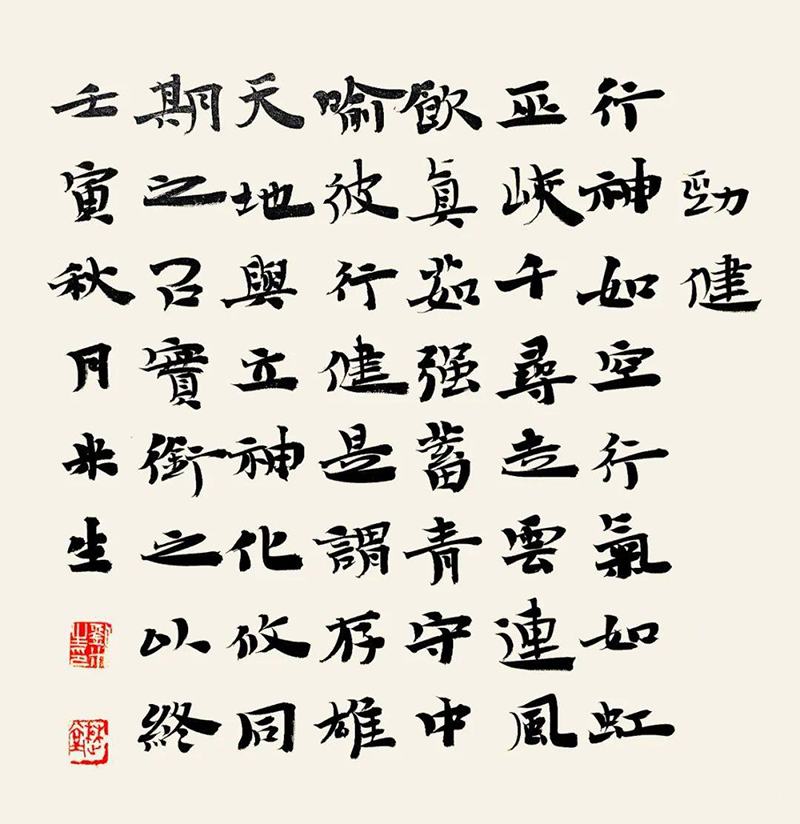 勁健
行神如空行氣如虹
巫峽千尋走雲連風
飲眞茹强蓄青守中
喻彼行健是謂存雄
天地與立神化攸同
期之召實銜之以終
壬寅秋月米生